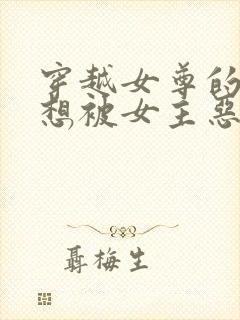 穿越女尊的
想被女主惡
聶梅生